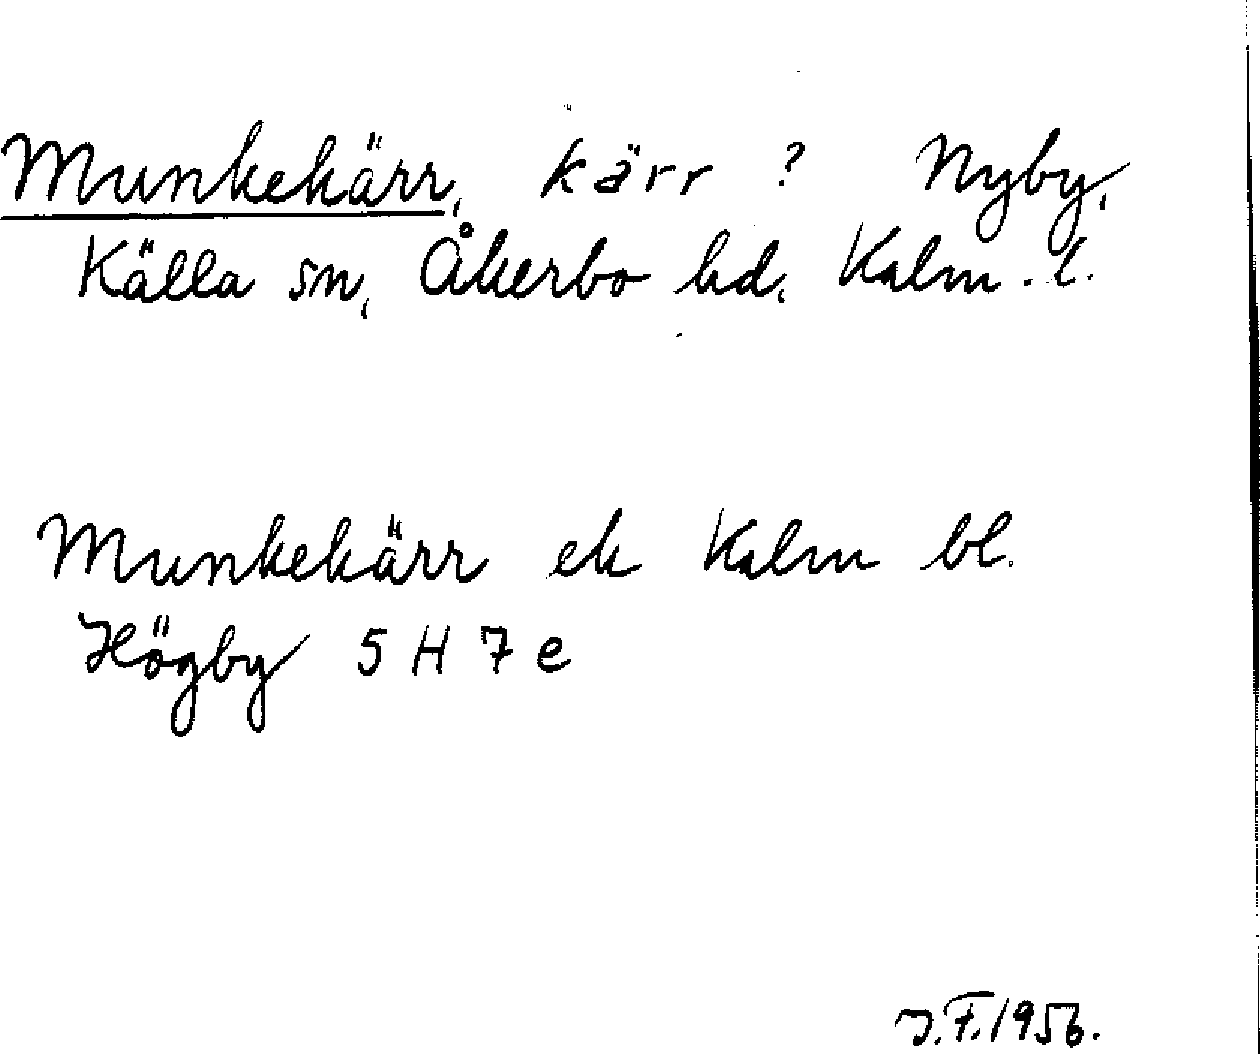 Munkekärr, kärr ? Nyby,
Källa sn, Åkerbo hd, Kalm. l.
Munkekärr ek Kalm bl.
Högby 5 H 7 e
J.F. 1956.